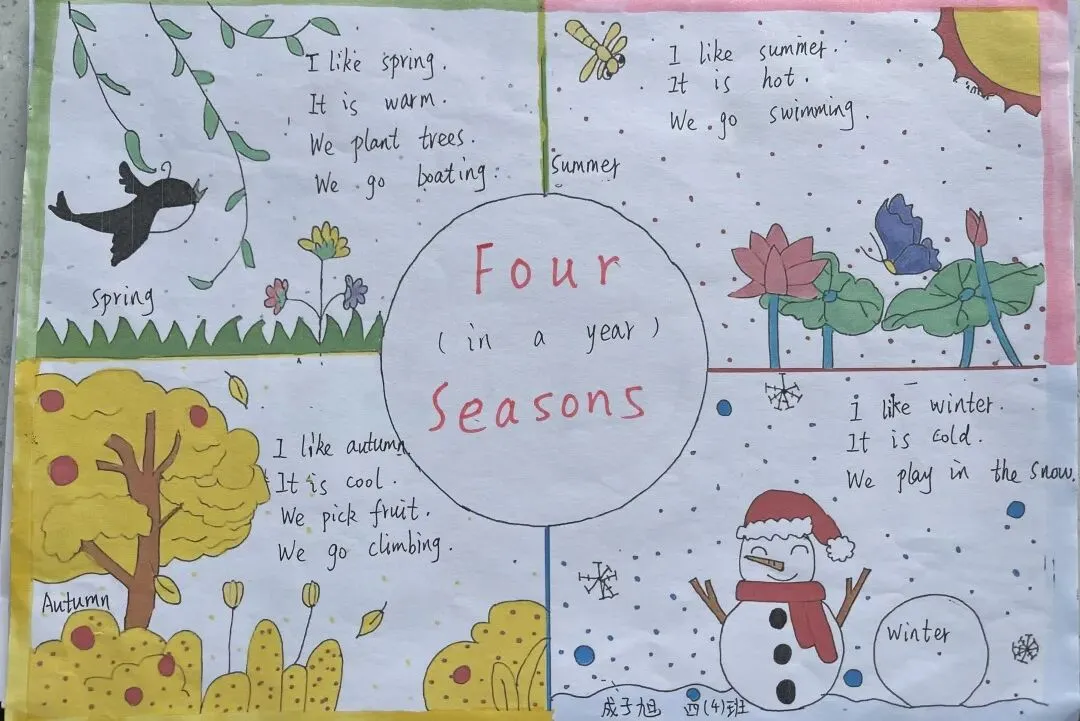 I like spring.
It is warm.
We plant trees.
We go boating.
Spring
I like summer.
It is hot.
We go swimming.
Summer
Four
(in a year)
Seasons
I like autumn
It is cool.
We pick fruit.
We go climbing.
Autumn
i like winter.
It is cold.
We play in the snow.
winter
成子旭 四(4)班